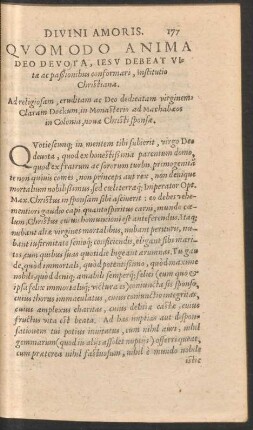 DIVINI AMORIS. 177
QVOMODO ANIMA
DEO DEVOTA, IESV DEBEAT VI-
tæ ac passionibus conformari, institutio
Christiana.
Ad religiosam, eruditam ac Deo dedicatam virginem
Claram in Monasterio ad Machabæos
in Colonia, noua Christi sponsa.
QVotiescunq; in mentem tibi subierit, virgo Deo
deuota, quod ex honestissima parentum domo,
quod ex fratrum ac sororum turba, primogenita
te non quiuis comes, non princeps aut rex, non denique
mortalium nobilissimus, sed cœli terræq; Imperator Opt.
Max. Christus in sponsam sibi asciuerit:
mentiori gaudio capi, spiritus carni, mundo cæ-
lum, Christus cuiuis homini anteferendus. Itaq;
nubant aliæ virgines mortalibus, nubant perituris, nu-
bant infirmitatis
tus, cum quibus suas quotidie lugeant ærumnas. Tu gau-
de, quod immortali, quod potentissimo, quod maximè
nobili, quod deniq; amabili semperq; felici (cum quo &
ipsa felix immortalisq; victura sis) coniuncta sis sponso,
cuius thorus immaculatus, cuius coniunctio integritas,
cuius amplexus charitas, cuius delitiæ castæ, cuius
fructus vita est beata. Ad has nuptias aut disposi-
sationes tui potius inuitatus, cum nihil auri, nihil
gemmarum (quod in aliis assolet nuptiis) offerri quæat,
cum præterea nihil fastuosum, nihil è mundo nobile